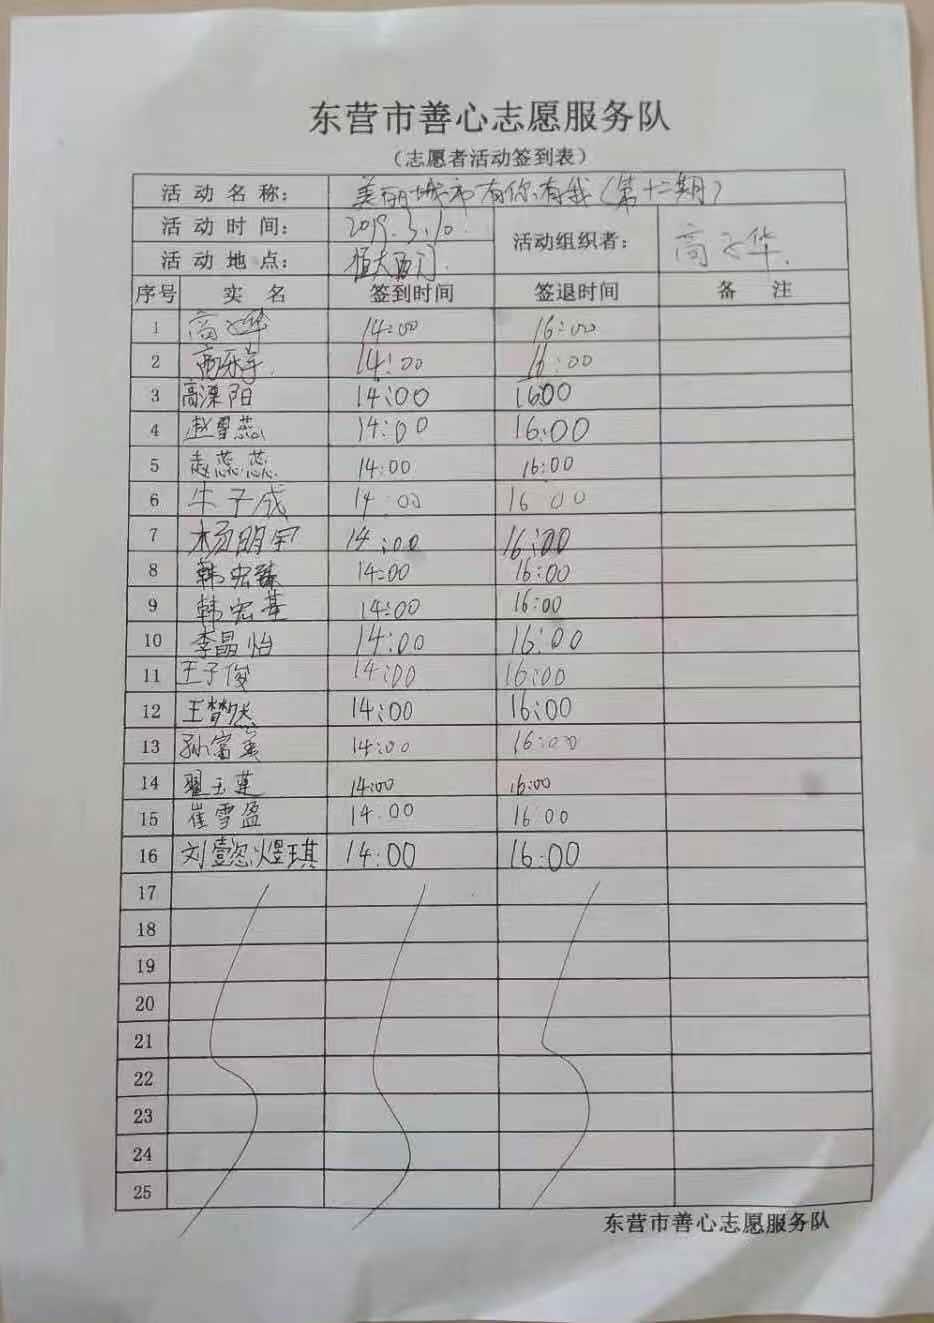 东营市善心志愿服务队
（志愿者活动签到表）
活动名称： 美丽城市有你有我（第十二期）
活动时间： 2019.3.10.
活动组织者： 高 华.
活动地点： 恒大西门.
序号 实名 签到时间 签退时间 备注
1 高 华 14:00 16:00
2 14:00 16:00
3 高溧阳 14:00 1600
4 赵曼蕊 14:00 16:00
5 赵蕊蕊 14:00 16:00
6 牛子成 14:00 16 00
7 杨明宇 14:00 16:00
8 韩宏臻 14:00 16:00
9 韩宏基 14:00 16:00
10 李晶怡 14:00 16:00
11 王子俊 14:00 16:00
12 王梦然 14:00 16:00
13 孙富英 14:00 16:00
14 翟玉莲 14:00 16:00
15 崔雪盈 14:00 16:00
16 刘懿煜琪 14:00 16:00
17
18
19
20
21
22
23
24
25
东营市善心志愿服务队